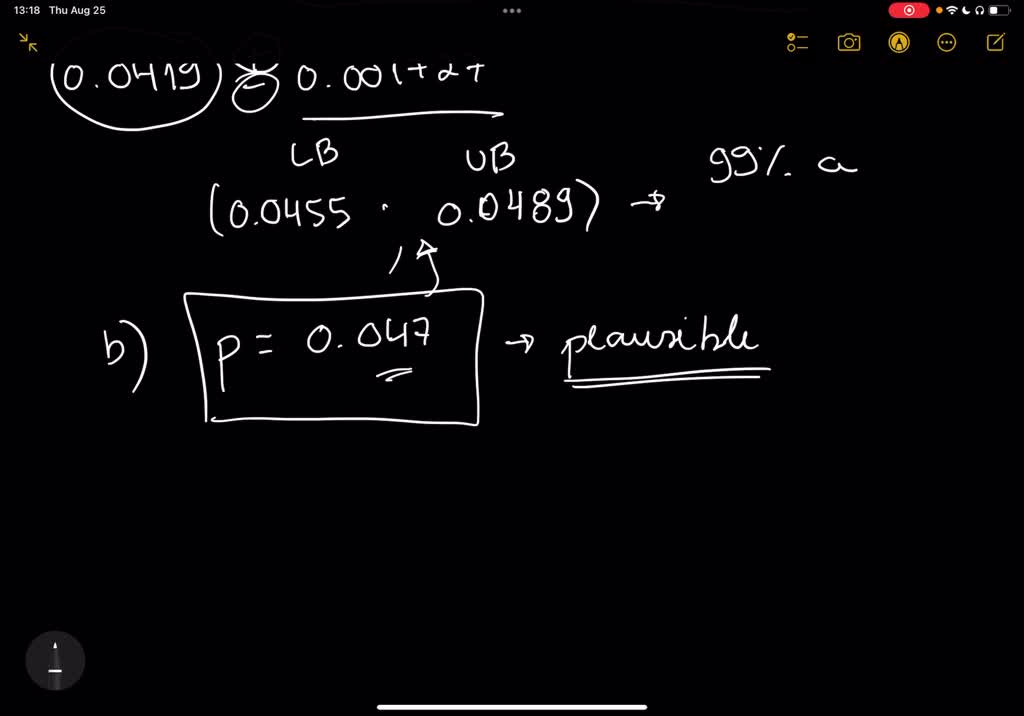 13:18 Thu Aug 25
(0.0419)
LB UB
99%. a
(0.0455 , 0.0489) →
b) p = 0.047 → plausible